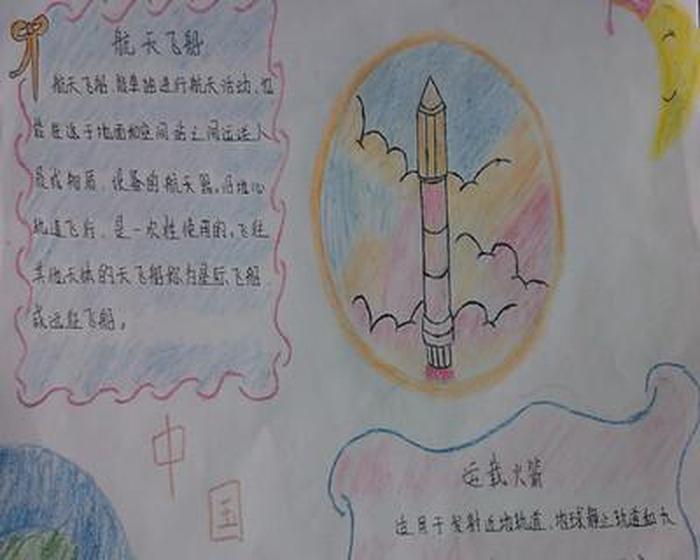 航天飞船
航天飞船,能单独进行航天活动,也
能往返于地面和空间站之间运送人
员或物质、设备的航天器。沿地心
轨道飞行,是一次性使用的,飞往
其他天体的天飞船称为星际飞船
或远征飞船。
中
国
运载火箭
适用于发射近地轨道、地球静止轨道和太